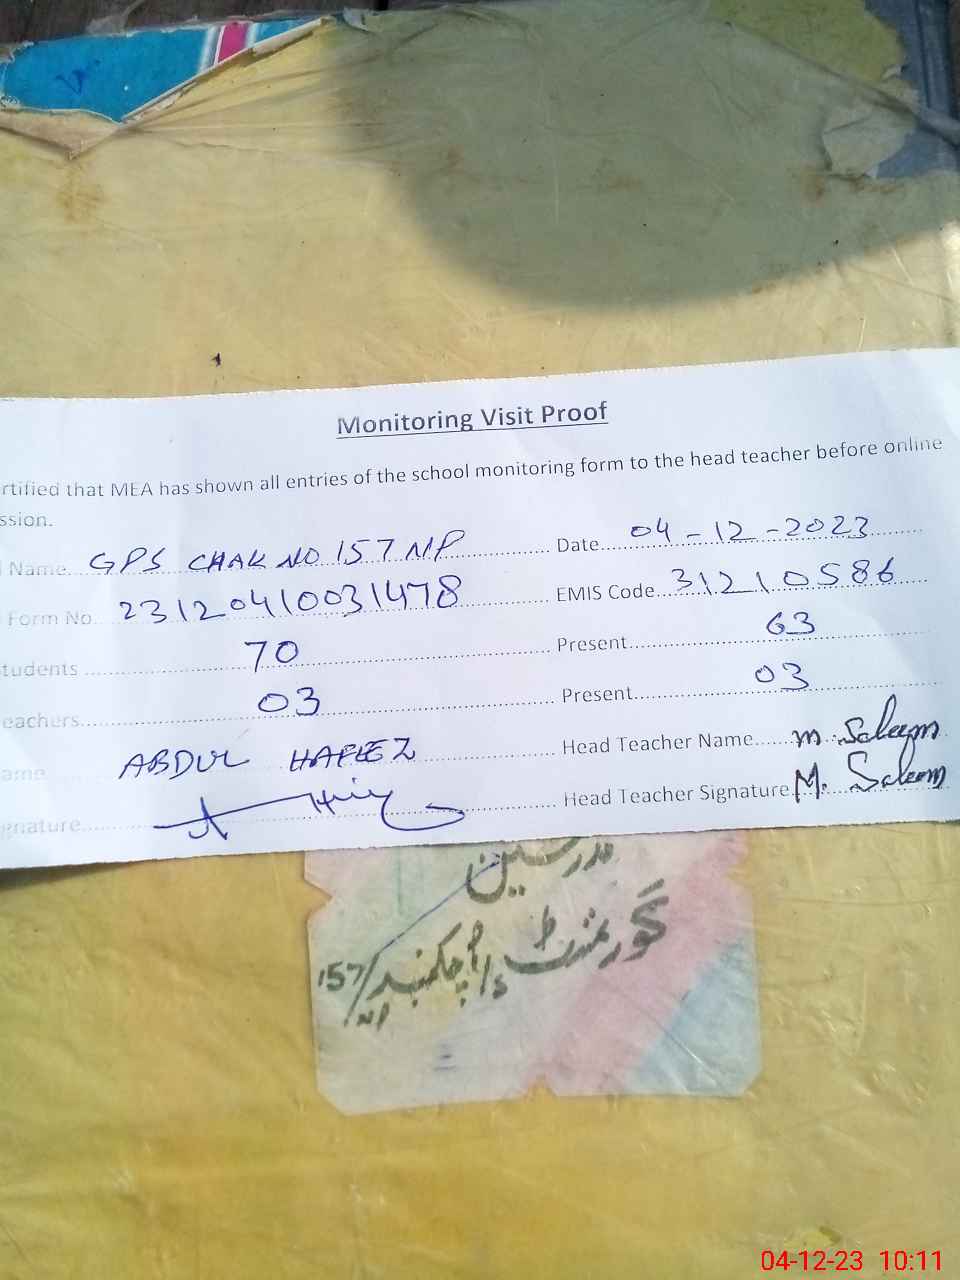 Monitoring Visit Proof
rtified that MEA has shown all entries of the school monitoring form to the head teacher before online
ssion.
Name GPS CHAK NO 157 NP Date 04-12-2023
Form No. 23120410031478 EMIS Code 31210586
tudents 70 Present 63
eachers 03 Present 03
ame ABDUL HAFEEZ Head Teacher Name M. Saleem
gnature Head Teacher Signature M. Saleem
مدرسین
گورنمنٹ پ/s چکنمبر 157/NP
04-12-23 10:11